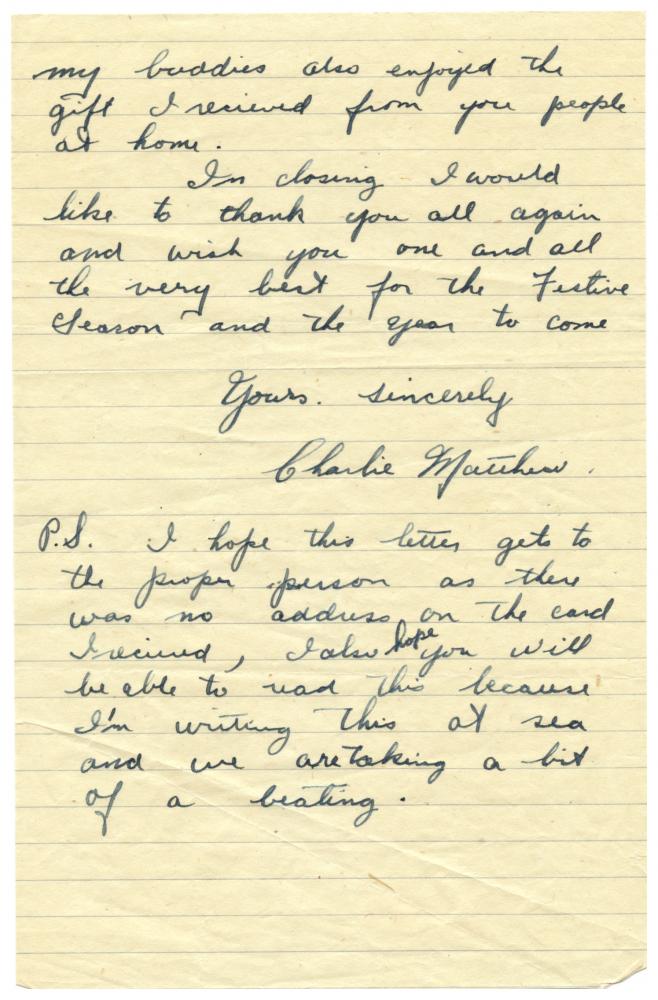 my buddies also enjoyed the
gift I recieved from you people
at home.
In closing I would
like to thank you all again
and wish you one and all
the very best for the Festive
Season and the year to come
Yours. sincerely
Charlie Matthew.
P.S. I hope this letter gets to
the proper person as there
was no address on the card
I recieved, I also hope you will
be able to read this because
I'm writing this at sea
and we are taking a bit
of a beating.